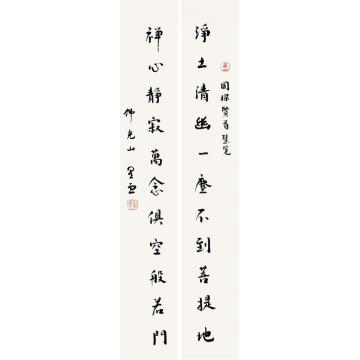 淨土清幽一塵不到菩提地
禪心靜寂萬念俱空般若門
佛光山 星雲